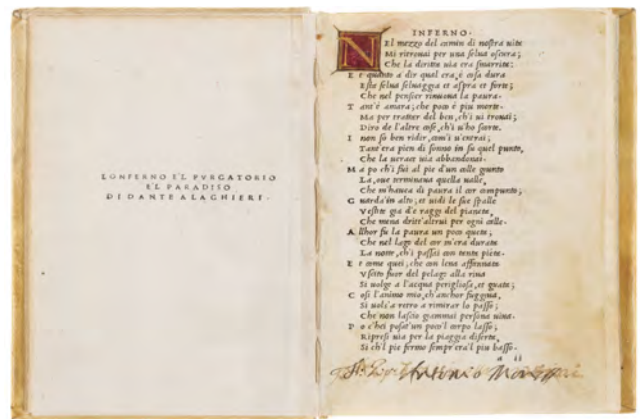 LO'NFERNO E'L PVRGATORIO
E'L PARADISO
DI DANTE ALAGHIERI.
INFERNO.
NEl mezzo del camin di nostra uita
Mi ritrouai per una selua oscura;
Che la diritta uia era smarrita:
E t quanto a dir qual era, è cosa dura
Esta selua seluaggia et aspra et forte;
Che nel pensier rinuoua la paura.
T ant'è amara; che poco è piu morte.
Ma per trattar del ben, ch'i ui trouai;
Diro de l'altre cose, ch'i u'ho scorte.
I non so ben ridir, com'i u'entrai;
Tant'era pien di sonno in su quel punto,
Che la uerace uia abbandonai.
M a po ch'i fui al pie d'un colle giunto
La, oue terminaua quella ualle,
Che m'hauea di paura il cor compunto;
G uarda'in alto; et uidi le sue spalle
Vestite gia d'e raggi del pianeta,
Che mena dritt'altrui per ogni calle.
A llhor fu la paura un poco queta;
Che nel lago del cor m'era durata
La notte, ch'i passai con tanta pièta.
E t come quei; che con lena affannata
Vscito fuor del pelago alla riua
Si uolge a l'acqua perigliosa, et guata;
C osi l'animo mio, ch'anchor fuggiua,
Si uols'a retro a rimirar lo passo;
Che non lascio giammai persona uiua.
P o c'hei posat'un poco'l corpo lasso;
Ripresi uia per la piaggia diserta,
Si ch'l pie fermo sempr'era'l piu basso.
a ii
Antonio